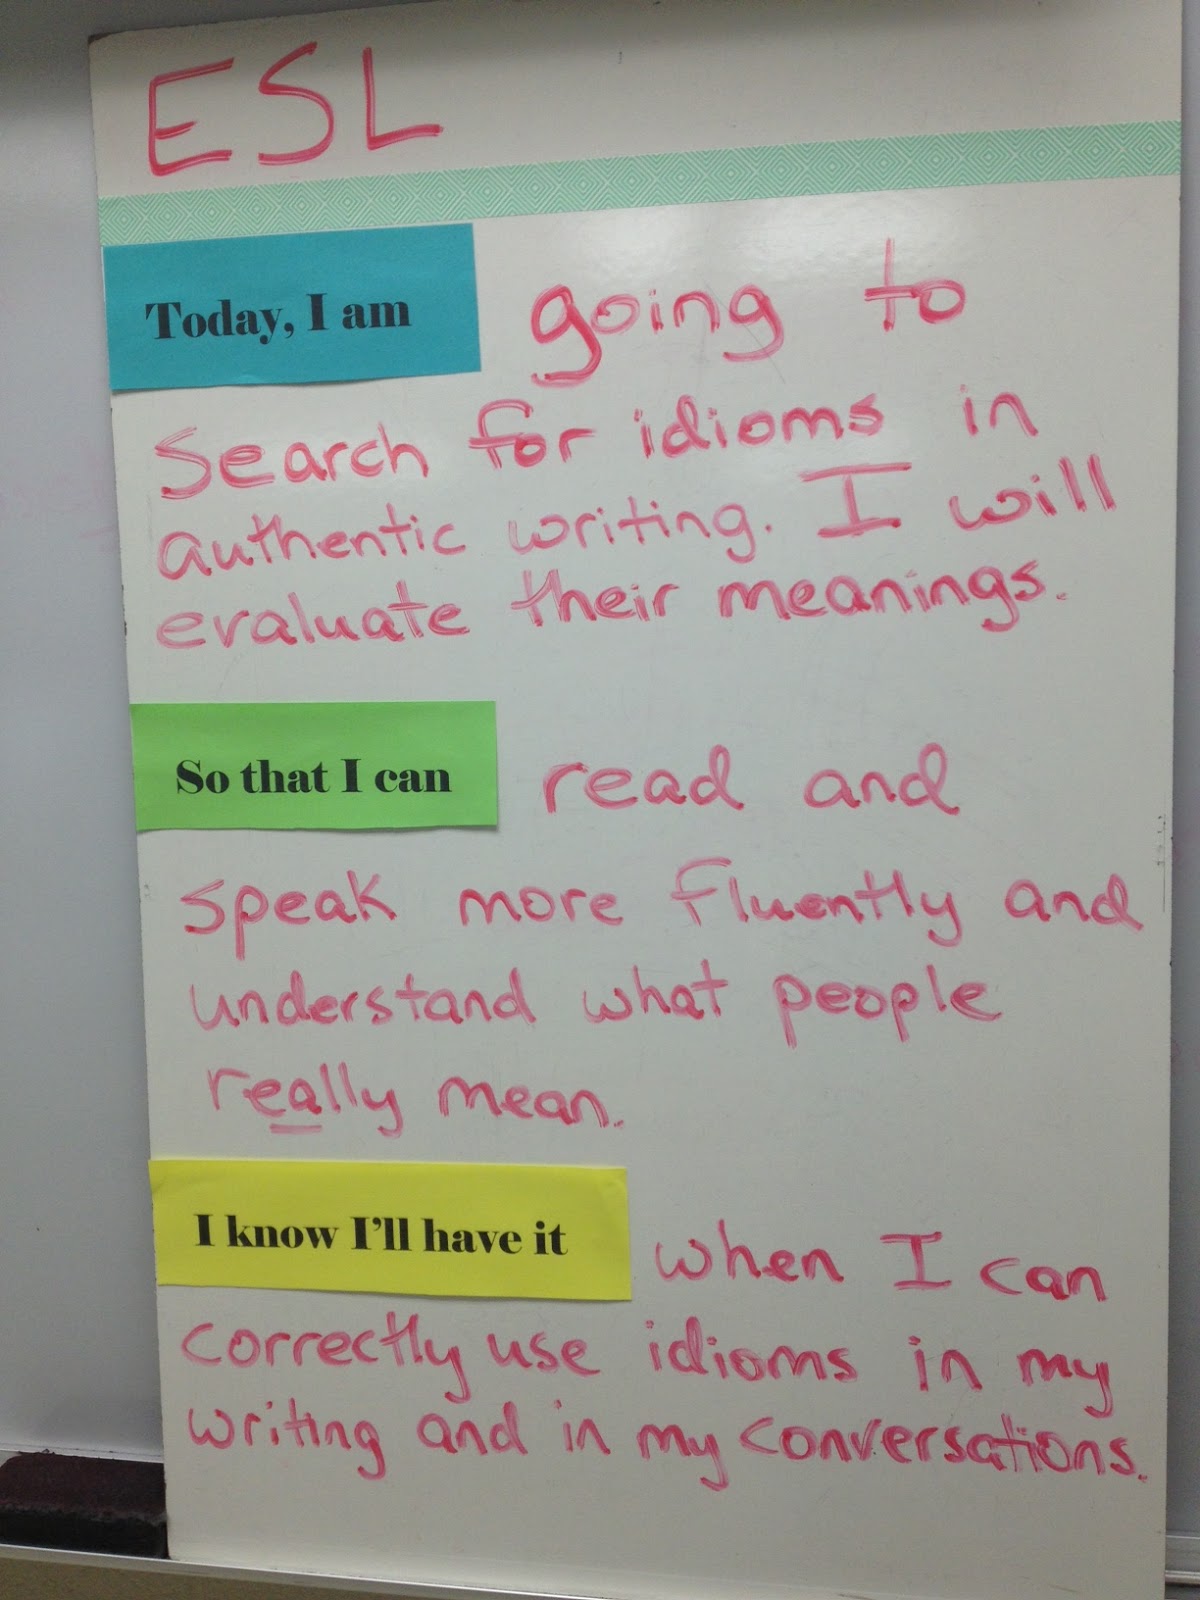 ESL
Today, I am going to
search for idioms in
authentic writing. I will
evaluate their meanings.
So that I can read and
speak more fluently and
understand what people
really mean.
I know I'll have it when I can
correctly use idioms in my
writing and in my conversations.